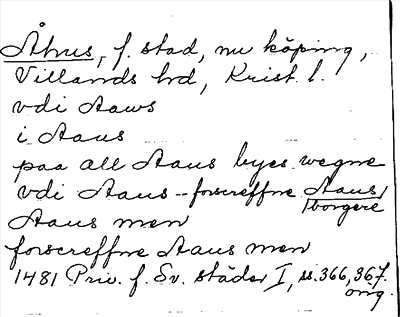 Åhus, f. stad, nu köping,
Villands hd, Krist. l.
vdi Aaws
i Aaus
paa all Aaus byes wegne
vdi Aaus -- forscreffne Aaus
borgere
Aaus men
forscreffne Aaus men
1481 Priv. f. Sv. städer I, ss. 366, 367.
orig.